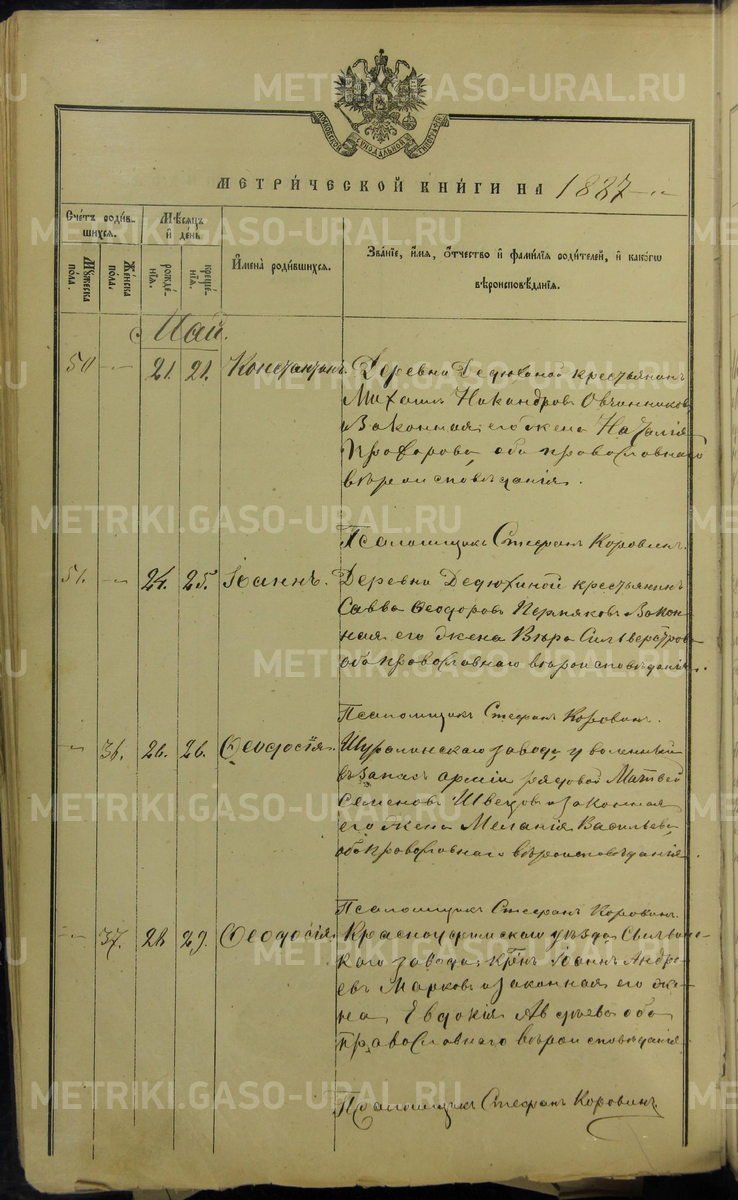 METRIKI.GASO-URAL.RU
МОСКОВСКОЙ СѴНОДАЛЬНОЙ ТИПОГРАФІИ
МЕТРИ́ЧЕСКОЙ КНИ́ГИ НА 1887
Сче́тъ роди́в-
шихсѧ.
Мѣ́сѧцъ
и҆ де́нь
И҆мена̀ роди́вшихсѧ.
Зва́нїе, и҆́мѧ, ѻ҆́тчество и҆ фами́лїѧ роди́телей, и҆ како́гѡ
вѣроисповѣ́данїѧ.
Мꙋ́жеска по́ла.
Же́нска по́ла.
рожде́нїѧ.
креще́нїѧ.
Май.
50 21. 21. Константинъ. Деревни Дедюхиной крестьянинъ
Михаилъ Никандровъ Овчинниковъ
и законная его жена Наталія
Прохорова оба православнаго
вѣроисповѣданія.
Псаломщикъ Стефанъ Коровинъ.
51. 24. 25. Іоаннъ. Деревни Дедюхиной крестьянинъ
Савва Ѳеодоровъ Пермяковъ и закон-
ная его жена Вѣра Сильверстрова
оба православнаго вѣроисповѣданія.
Псаломщикъ Стефанъ Коровинъ.
36. 26. 26. Ѳеодосія. Шуралинскаго завода уволенный
въ запасъ арміи рядовой Матвей
Семеновъ Швецовъ и законная
его жена Меланія Васильева
оба православнаго вѣроисповѣданія.
Псаломщикъ Стефанъ Коровинъ.
37. 28 29. Ѳеодосія. Красноуфимскаго уѣзда Сылвинс-
каго завода кр҃нъ Іоаннъ Андре-
евъ Марковъ и законная его же-
на Евдокія Авдѣева оба
православнаго вѣроисповѣданія.
Псаломщикъ Стефанъ Коровинъ.